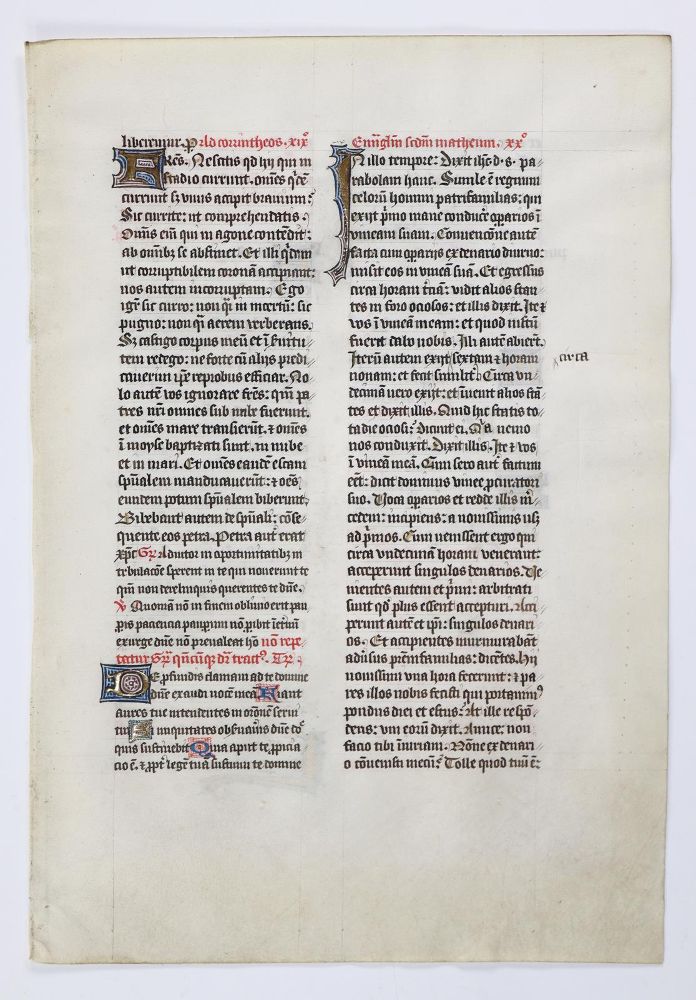 liberemur. P ad corrintheos. xix°
Fres. Nescitis qd hij qui in
stadio currunt. omēs qdē
currunt sz vnus accipit brauium:
Sic currite: ut comprehendatis.
Omnis eim qui in agone contendit:
ab omībz se abstinet. Et illi qdem
ut corruptibilem coronā accipiant:
nos autem incorruptam. Ego
igit sic curro: non qi in incertū: sic
pugno: non qi aerem verberans.
Sz castigo corpus meū et ī seruitu
tem redego: ne forte cū alijs predi
cauerim ipe reprobus efficiar. No
lo autē vos ignorare fres: qm pa
tres nri omnes sub nube fuerunt.
et omēs mare transierūt. ⁊ omēs
ī moyse baptizati sunt. in nube
et in mari. Et omēs eandē escam
spūalem manducauerūt: ⁊ oēs
eundem potum spūalem biberunt.
Bibebant autem de spūali: cōse
quente eos petra. Petra aut erat
xpc Gr Adiutor in oportunitatibz in
tribulacōe sperent in te qui nouerunt te
qm non derelinquis querentes te dne.
V Quoniā nō in finem obliuio erit pau
peris paciencia pauperum nō peribit ī eternū
exurge dne nō preualeat hō non repe
tatur Gr qncunqz dr tract°. Tr.
De profundis clamaui ad te domine
dne exaudi vocē meā Fiant
aures tue intendentes in oronē serui
tui Si iniquitates obseruaueris dne do
quis sustinebit Quia aput te propicia
cio ē. ⁊ ppt legē tuā sustinui te domine
Ewāglm scdm matheum. xx°
In illo tempore: Dixit ihc d. s. pa
rabolam hanc. Simile ē regnum
celorū homini patrifamilias: qui
exijt pmo mane conducē operarios ī
vineam suam. Conuencōne autē
facta cum operarijs ex denario diurno:
misit eos in vineā suā. Et egressus
circa horam tciā: vidit alios stan
tes in foro ociosos: et illis dixit. Ite ⁊
vos ī vineā meam: et quod iustū
fuerit dabo vobis. Illi autē abierūt.
Iterū autem exijt sextam ⁊ horam circa
nonam: et fecit similit. Circa vn
decimam vero exijt: et īuenit alios stā
tes et dixit illis. Quid hic statis to
ta die ociosi: Dicunt ei. Qia nemo
nos conduxit. Dixit illis. Ite ⁊ vos
ī vineā meā. Cum sero aut factum
eēt: dicit dominus vinee pcuratori
suo. Voca operarios et redde illis m
cedem: incipiens a nouissimis usqz
ad pmos. Cum venissent ergo qui
circa vndecimā horam venerant:
acceperunt singulos denarios. Ve
nientes autem et pmi: arbitrati
sunt qd plus essent accepturi. Acce
perunt autē et ipi: singulos denari
os. Et accipientes murmurabāt
adūsus premfamilias: dicētes. Hij
nouissimi vna hora fecerunt: ⁊ pa
res illos nobis fecisti qui portauim⁹
pondus diei et estus: At ille respō
dens: vni eorū dixit. Amice: non
facio tibi īniuriam. Nōne ex denari
o cōuenisti mecū: Tolle quod tuū ē: